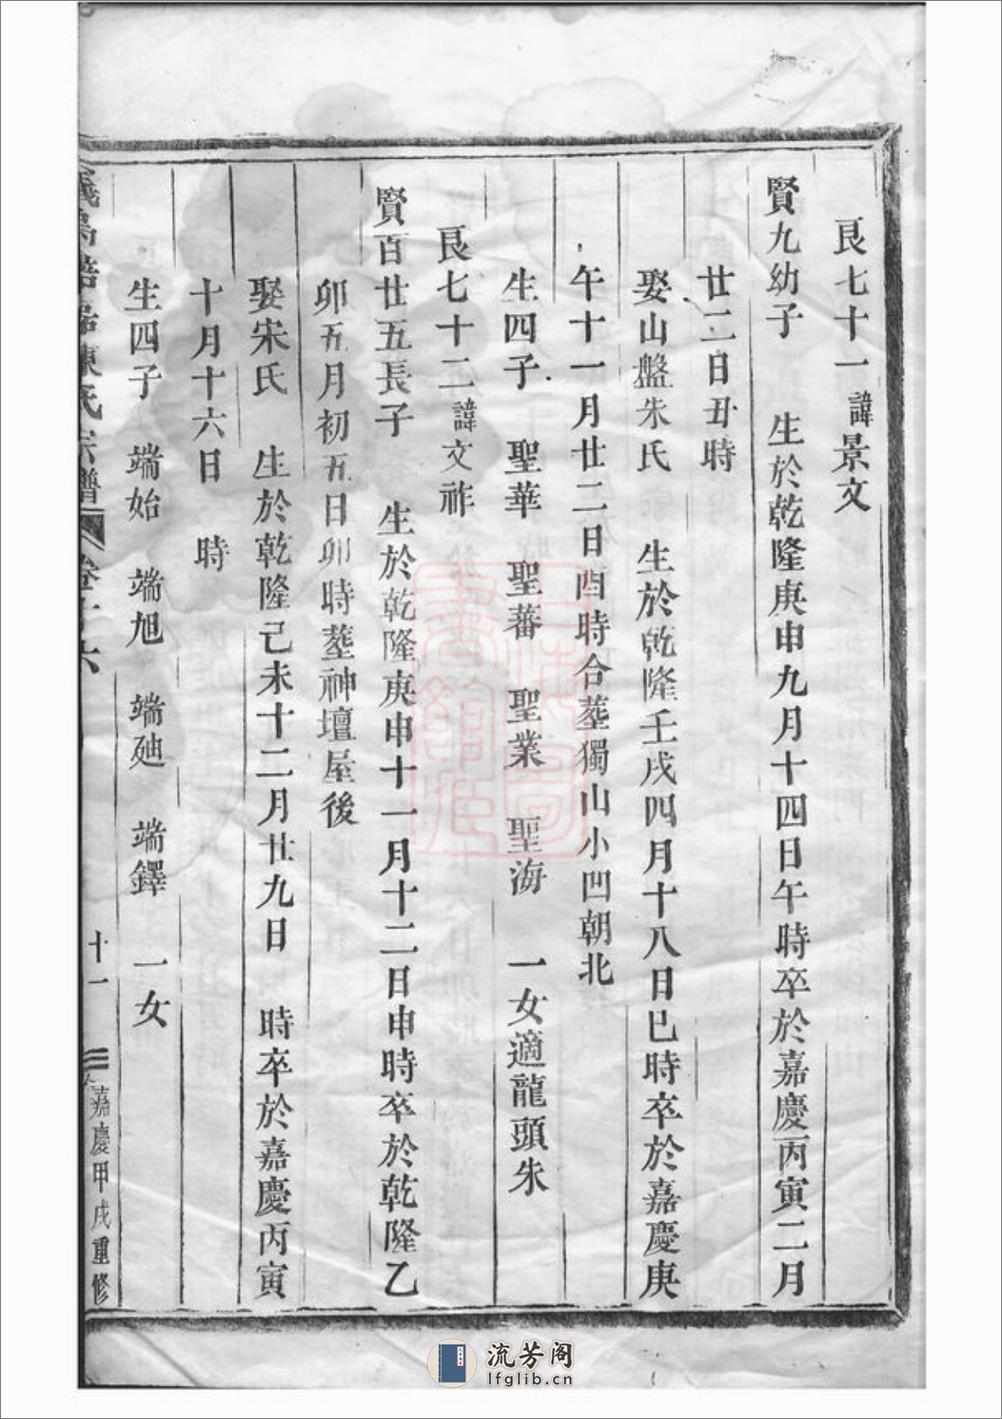 艮七十一 諱景文
賢九幼子 生於乾隆庚申九月十四日午時卒於嘉慶丙寅二月
廿二日丑時
娶山盤朱氏 生於乾隆壬戌四月十八日巳時卒於嘉慶庚
午十一月廿二日酉時合塟獨山小凹朝北
生四子 聖華 聖蕃 聖業 聖海 一女適龍頭朱
艮七十二 諱文祚
賢百廿五長子 生於乾隆庚申十一月十二日申時卒於乾隆乙
卯五月初五日卯時塟神壇屋後
娶宋氏 生於乾隆己未十二月廿九日 時卒於嘉慶丙寅
十月十六日 時
生四子 端始 端旭 端廸 端鐸 一女
陳氏宗譜 十一 嘉慶甲戌重修
流芳阁
lfglib.cn